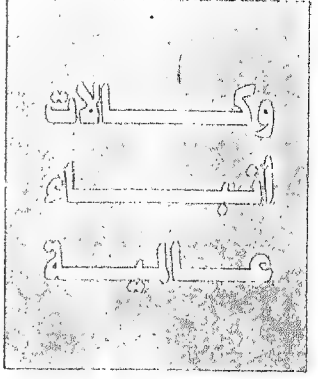 وكالات
أنباء
عالمية